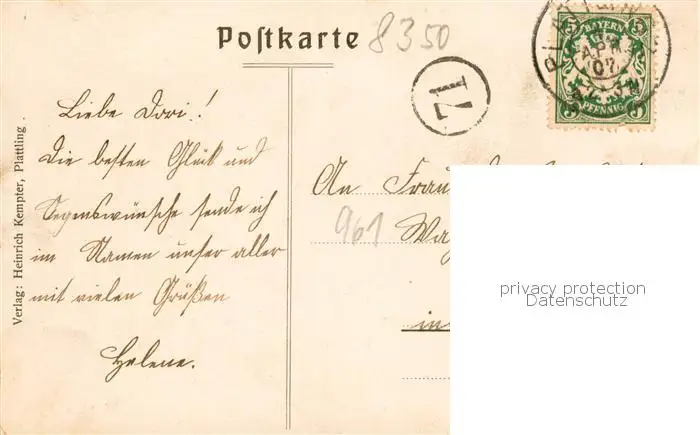 Postkarte
8350
71
BAYERN
5 5
APR
07
PFENNIG
Liebe Dori!
Die besten Glück und
Segenswünsche sende ich
im Namen unser aller
mit vielen Grüßen
Helene.
An Frau
961
in
Verlag: Heinrich Kempter, Plattling.
privacy protection
Datenschutz